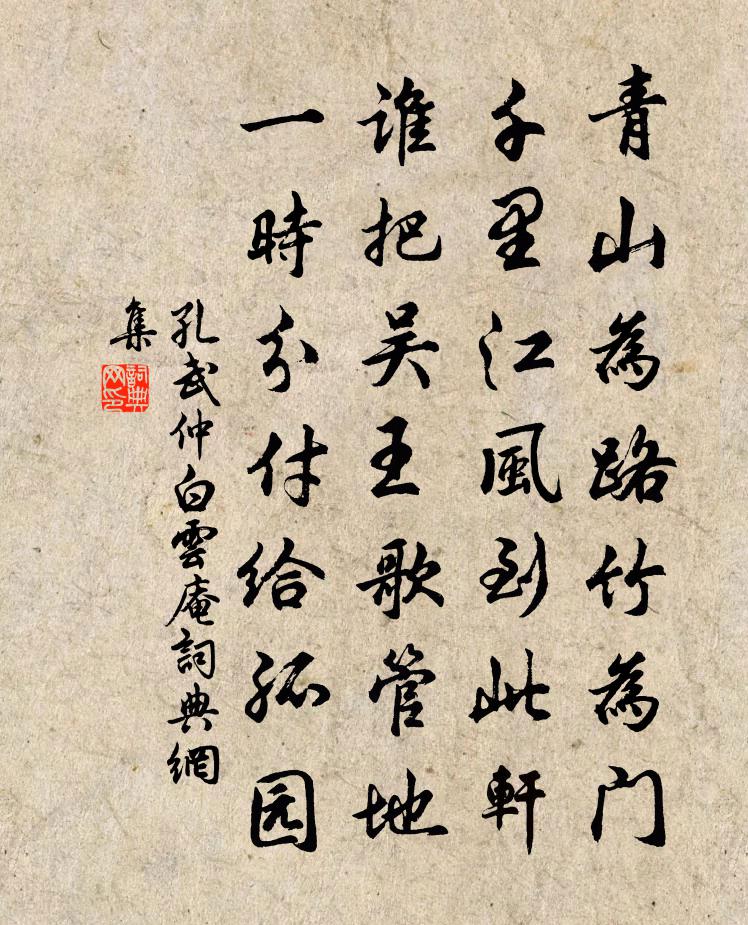 青山為路竹為門
千里江風到此軒
誰把吴王歌管地
一時分付给孤园
孔武仲白雲庵詞典網
集
詞典
网印